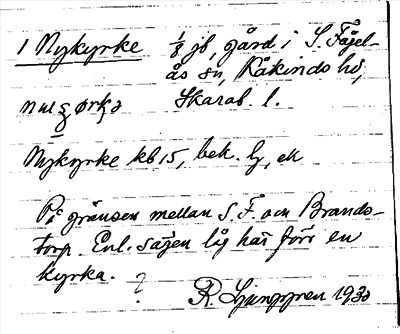 1 Nykyrke 1/8 jb, gård i S. Fågel-
ås sn, Kåkinds hd,
Skarab. l.
Nykyrke kb 15, bek. by, ek
På gränsen mellan S. F. och Brands-
torp. Enl. sägen låg här förr en
kyrka. ?
R. Ljunggren 1930